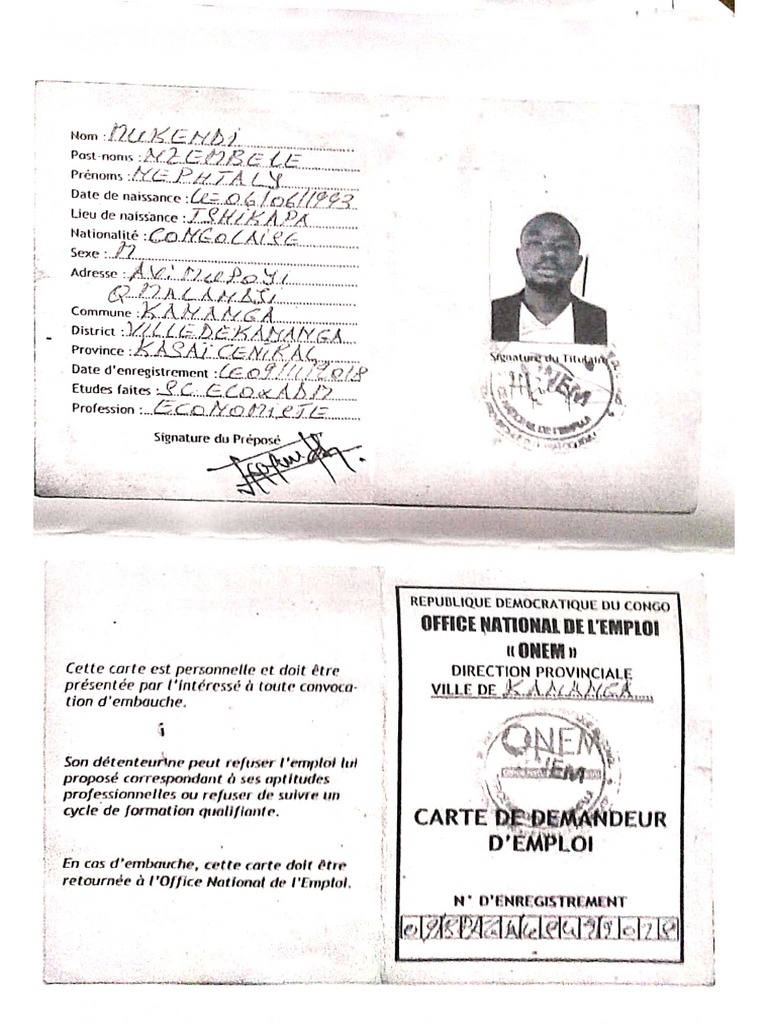 Nom : MUKENDI
Post-noms : NZEMBELE
Prénoms : NEPHTALY
Date de naissance : LE 06/06/1993
Lieu de naissance : TSHIKAPA
Nationalité : CONGOLAISE
Sexe : M
Adresse : AV: MUPOYI
Q MALANDJI
Commune : KANANGA
District : VILLE DE KANANGA
Province : KASAÏ CENTRAL
Date d'enregistrement : LE 09/11/2018
Etudes faites : SC. ECO & ADM
Profession : ECONOMISTE
Signature du Préposé
Signature du Titulaire
ONEM
Cette carte est personnelle et doit être
présentée par l'intéressé à toute convoca-
tion d'embauche.
Son détenteur ne peut refuser l'emploi lui
proposé correspondant à ses aptitudes
professionnelles ou refuser de suivre un
cycle de formation qualifiante.
En cas d'embauche, cette carte doit être
retournée à l'Office National de l'Emploi.
REPUBLIQUE DEMOCRATIQUE DU CONGO
OFFICE NATIONAL DE L'EMPLOI
« ONEM »
DIRECTION PROVINCIALE
VILLE DE KANANGA
ONEM
CARTE DE DEMANDEUR
D'EMPLOI
N° D'ENREGISTREMENT